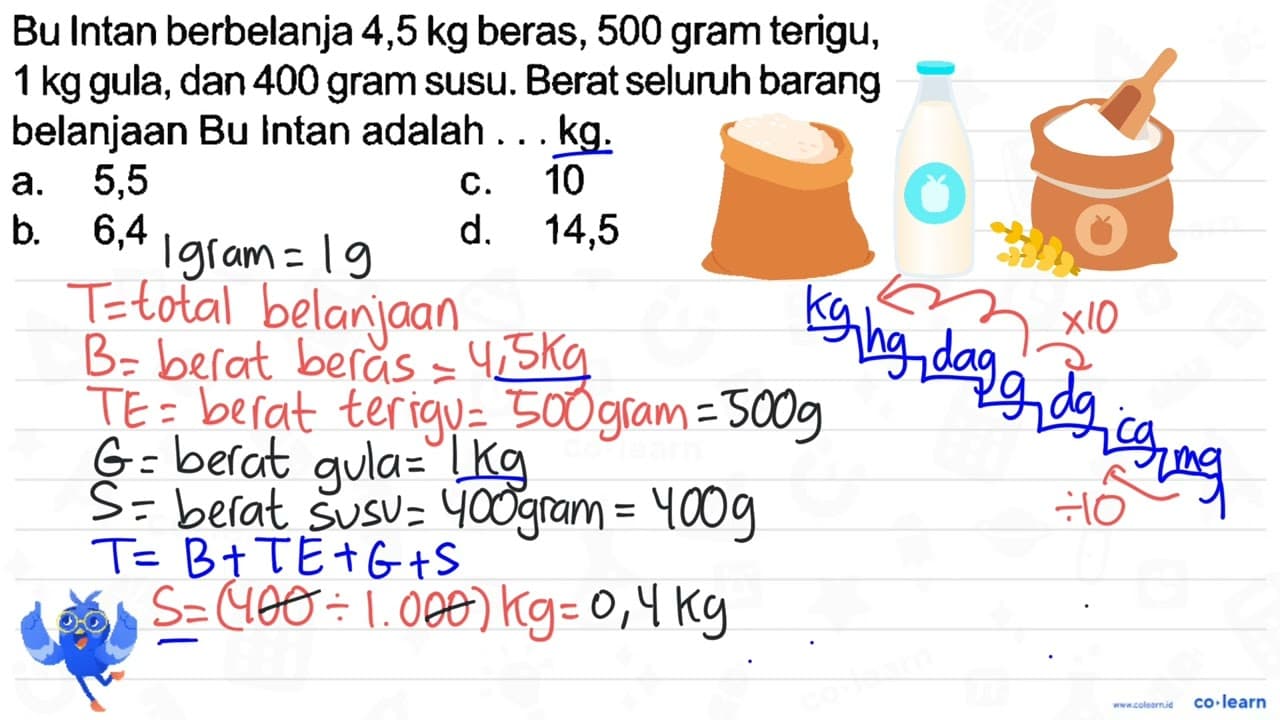 Bu Intan berbelanja 4,5 kg beras, 500 gram terigu,
1 kg gula, dan 400 gram susu. Berat seluruh barang
belanjaan Bu Intan adalah . . . kg.
a. 5,5 c. 10
b. 6,4 d. 14,5
1gram = 1g
T = total belanjaan
B = berat beras = 4,5Kg
TE = berat terigu = 500gram = 500g
G = berat gula = 1 Kg
S = berat susu = 400gram = 400g
T = B + TE + G + S
S = (400 ÷ 1.000) Kg = 0,4 Kg
kg hg dag g dg cg mg
x10
÷10
co·learn
www.colearn.id co·learn